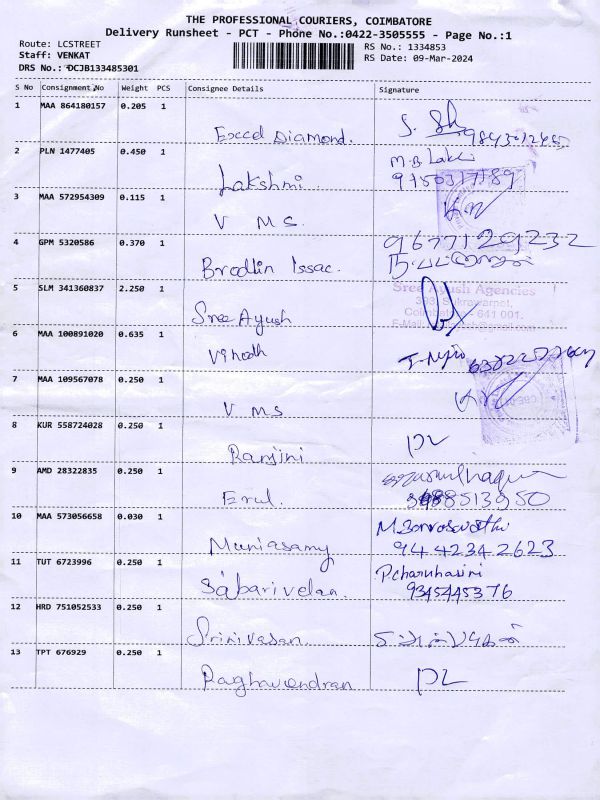 THE PROFESSIONAL COURIERS, COIMBATORE
Delivery Runsheet - PCT - Phone No.:0422-3505555 - Page No.:1
Route: LCSTREET
RS No.: 1334853
Staff: VENKAT
RS Date: 09-Mar-2024
DRS No.: DCJB133485301
S No Consignment No Weight PCS Consignee Details Signature
1 MAA 864180157 0.205 1
Exced Diamond.
2 PLN 1477405 0.450 1
M.B Lakci
Lakshmi
9750317189
3 MAA 572954309 0.115 1
V M S.
4 GPM 5320586 0.370 1 9677129232
Brodlin Issac.
5 SLM 341360837 2.250 1
Sree Ayush Agencies
Sree Ayush
6 MAA 100891020 0.635 1
Vinodh
7 MAA 109567078 0.250 1
V MS
8 KUR 558724028 0.250 1
Ranjini
9 AMD 28322835 0.250 1
Erul.
10 MAA 573056658 0.030 1
Muniasamy 94 4234 2623
11 TUT 6723996 0.250 1 P.charuhasini
Sabarivelan. 9345445376
12 HRD 751052533 0.250 1
Srinivasan
13 TPT 676929 0.250 1
Raghavendran